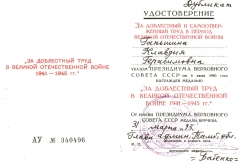 "ЗА ДОБЛЕСТНЫЙ ТРУД
В ВЕЛИКОЙ ОТЕЧЕСТВЕННОЙ ВОЙНЕ
1941—1945 гг."
АУ № 340496
Дубликат
УДОСТОВЕРЕНИЕ
ЗА ДОБЛЕСТНЫЙ И САМООТВЕР-
ЖЕННЫЙ ТРУД В ПЕРИОД
ВЕЛИКОЙ ОТЕЧЕСТВЕННОЙ ВОЙНЫ
Клавдия
Герасимовна
УКАЗОМ ПРЕЗИДИУМА ВЕРХОВНОГО
СОВЕТА СССР от 6 июня 1945 года
НАГРАЖДЕН МЕДАЛЬЮ
"ЗА ДОБЛЕСТНЫЙ ТРУД
В ВЕЛИКОЙ ОТЕЧЕСТВЕННОЙ
ВОЙНЕ 1941—1945 гг."
ПРЕЗИДИУМА ВЕРХОВНОГО
СОВЕТА СССР МЕДАЛЬ ВРУЧЕНА
Марта 95